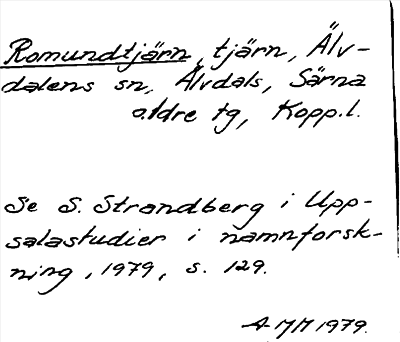 Romundtjärn, tjärn, Älv-
dalens sn, Älvdals, Särna
o. Idre tg, Kopp.l.
Se S. Strandberg i Upp-
salastudier i namnforsk-
ning, 1979, s. 129.
AMM 1979.